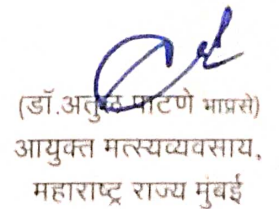 (डॉ.अतुल पाटणे भाप्रसे)
आयुक्त मत्स्यव्यवसाय,
महाराष्ट्र राज्य मुंबई